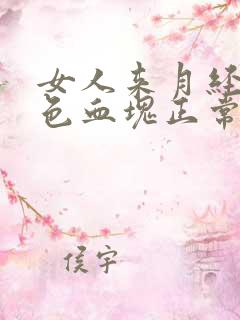 女人来月经
色血块正常
侯宇